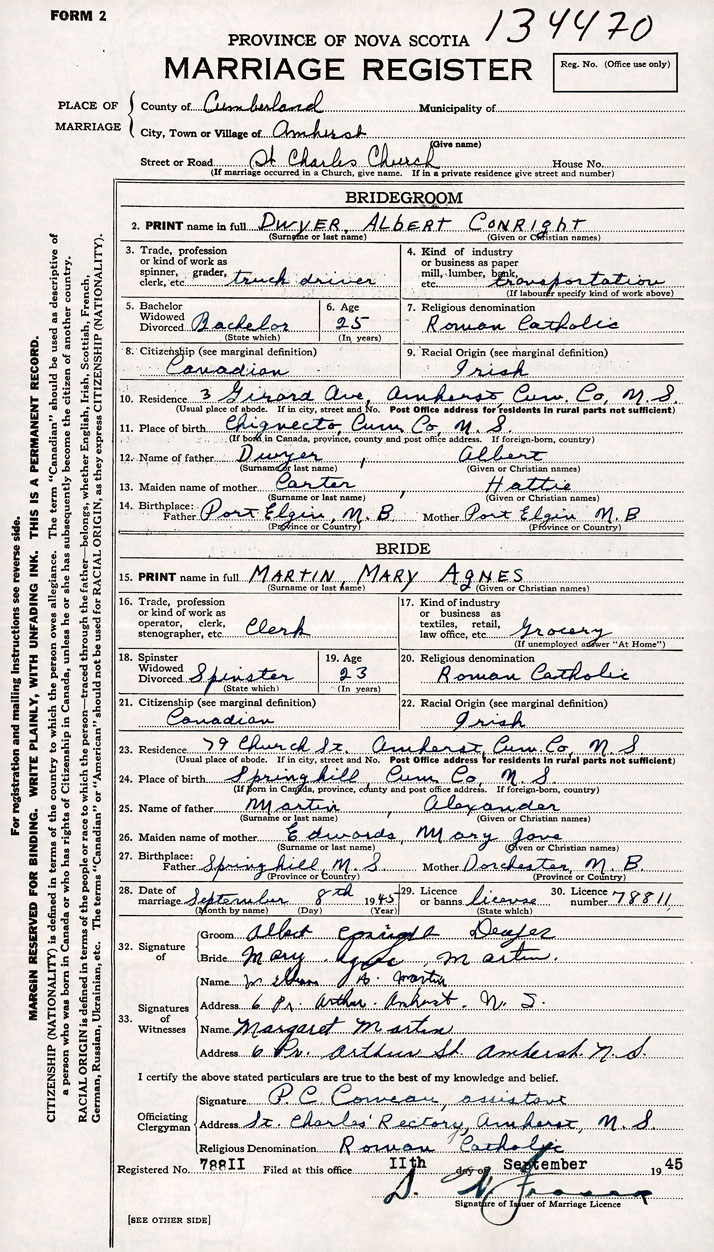 FORM 2
134470
PROVINCE OF NOVA SCOTIA
MARRIAGE REGISTER
Reg. No. (Office use only)
PLACE OF MARRIAGE
County of Cumberland Municipality of
City, Town or Village of Amherst
(Give name)
Street or Road St Charles Church House No.
(If marriage occurred in a Church, give name. If in a private residence give street and number)
BRIDEGROOM
2. PRINT name in full DWYER, ALBERT CONRIGHT
(Surname or last name) (Given or Christian names)
3. Trade, profession or kind of work as spinner, grader, clerk, etc truck driver
4. Kind of industry or business as paper mill, lumber, bank, etc. transportation
(If labourer specify kind of work above)
5. Bachelor Widowed Divorced Bachelor
(State which)
6. Age 25
(In years)
7. Religious denomination
Roman Catholic
8. Citizenship (see marginal definition)
Canadian
9. Racial Origin (see marginal definition)
Irish
10. Residence 3 Girard Ave, Amherst Cum. Co, N. S.
(Usual place of abode. If in city, street and No. Post Office address for residents in rural parts not sufficient)
11. Place of birth Chignecto Cum Co N. S.
(If born in Canada, province, county and post office address. If foreign-born, country)
12. Name of father Dwyer, Albert
(Surname or last name) (Given or Christian names)
13. Maiden name of mother Carter, Hattie
(Surname or last name) (Given or Christian names)
14. Birthplace: Father Port Elgin, N. B. Mother Port Elgin, N. B
(Province or Country) (Province or Country)
BRIDE
15. PRINT name in full MARTIN, MARY AGNES
(Surname or last name) (Given or Christian names)
16. Trade, profession or kind of work as operator, clerk, stenographer, etc. Clerk
17. Kind of industry or business as textiles, retail, law office, etc. Grocery
(If unemployed answer "At Home")
18. Spinster Widowed Divorced Spinster
(State which)
19. Age 23
(In years)
20. Religious denomination
Roman Catholic
21. Citizenship (see marginal definition)
Canadian
22. Racial Origin (see marginal definition)
Irish
23. Residence 79 Church St. Amherst Cum. Co, N. S
(Usual place of abode. If in city, street and No. Post Office address for residents in rural parts not sufficient)
24. Place of birth Springhill, Cum Co, N. S
(If born in Canada, province, county and post office address. If foreign-born, country)
25. Name of father Martin, Alexander
(Surname or last name) (Given or Christian names)
26. Maiden name of mother Edwards, Mary Jane
(Surname or last name) (Given or Christian names)
27. Birthplace: Father Springhill, N. S Mother Dorchester, N. B.
(Province or Country) (Province or Country)
28. Date of marriage September 8th 1945
(Month by name) (Day) (Year)
29. Licence or banns license
(State which)
30. Licence number 78811
32. Signature of
Groom Albert Conright Dwyer
Bride Mary Agnes Martin.
33. Signatures of Witnesses
Name A. Martin
Address 6 Pr. Arthur. Amherst. N. S.
Name Margaret Martin
Address 6 Pr. Arthur St. Amherst. N. S.
I certify the above stated particulars are true to the best of my knowledge and belief.
Officiating Clergyman
Signature P. C. Comeau, assistant
Address St. Charles' Rectory, Amherst, N. S.
Religious Denomination Roman Catholic
Registered No. 788II Filed at this office IIth day of September 1945
Signature of Issuer of Marriage Licence
[SEE OTHER SIDE]
For registration and mailing instructions see reverse side.
MARGIN RESERVED FOR BINDING. WRITE PLAINLY, WITH UNFADING INK. THIS IS A PERMANENT RECORD.
CITIZENSHIP (NATIONALITY) is defined in terms of the country to which the person owes allegiance. The term "Canadian" should be used as descriptive of
a person who was born in Canada or who has rights of Citizenship in Canada, unless he or she has subsequently become the citizen of another country.
RACIAL ORIGIN is defined in terms of the people or race to which the person—traced through the father—belongs, whether English, Irish, Scottish, French,
German, Russian, Ukrainian, etc. The terms "Canadian" or "American" should not be used for RACIAL ORIGIN, as they express CITIZENSHIP (NATIONALITY).